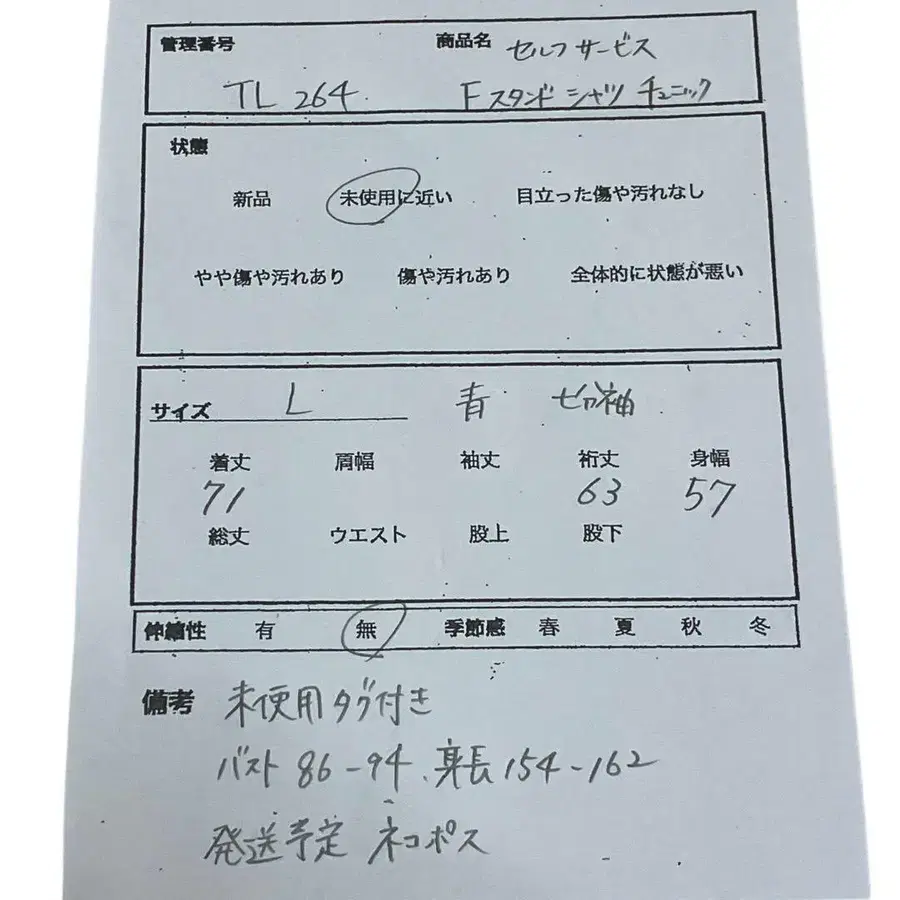 管理番号 商品名 セルフサービス
TL 264 Fスタンドシャツチュニック
状態
新品 未使用に近い 目立った傷や汚れなし
やや傷や汚れあり 傷や汚れあり 全体的に状態が悪い
サイズ L 青 七分袖
着丈 肩幅 袖丈 裄丈 身幅
71 63 57
総丈 ウエスト 股上 股下
伸縮性 有 無 季節感 春 夏 秋 冬
備考 未使用タグ付き
バスト 86-94、身長154-162
発送予定 ネコポス